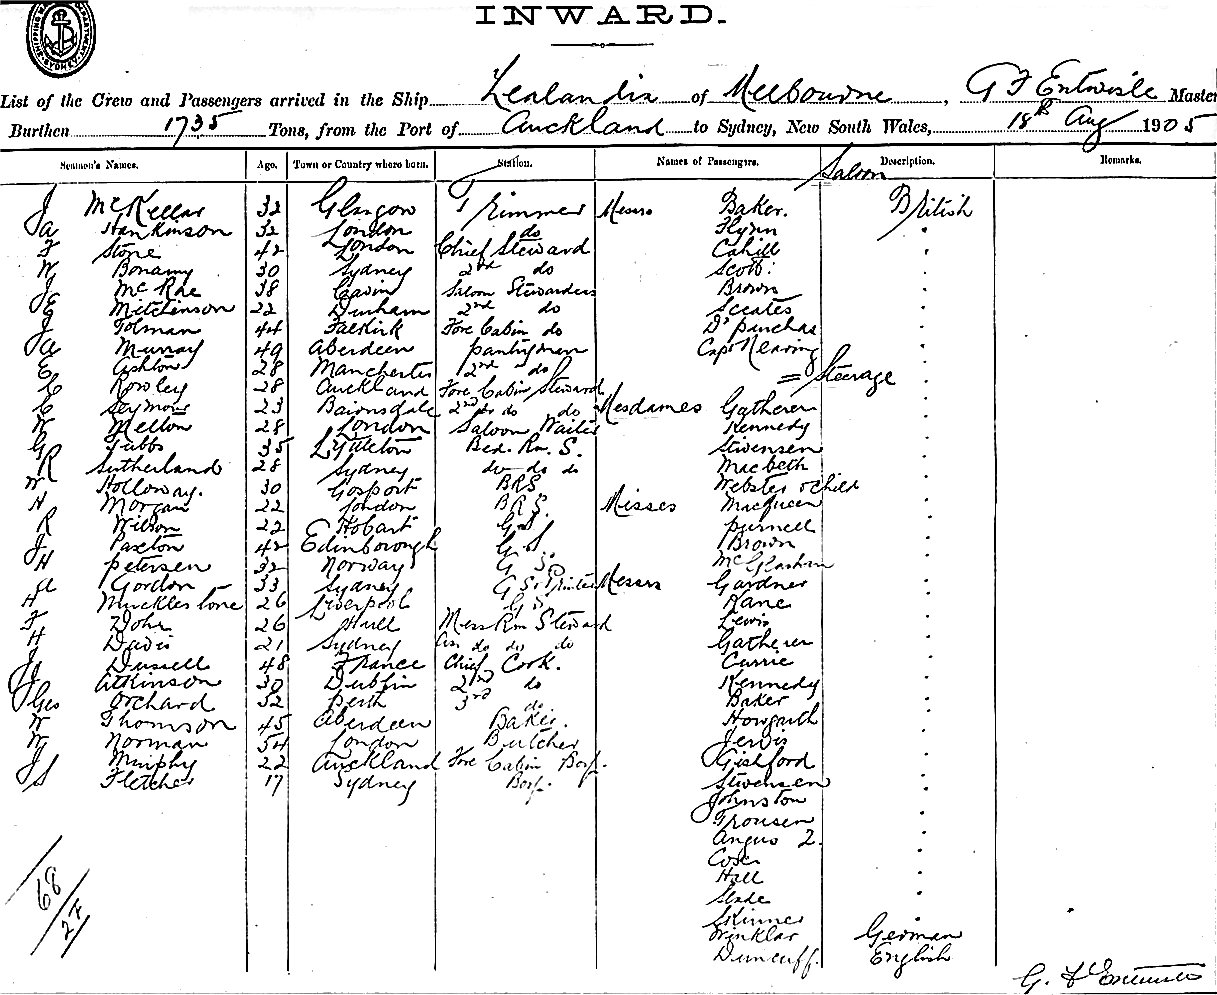 INWARD.
SHIPPING MASTER'S DEPARTMENT SYDNEY
List of the Crew and Passengers arrived in the Ship Zealandia of Melbourne, G F Entwisle Master
Burthen 1735 Tons, from the Port of Auckland to Sydney, New South Wales, 18th Aug 1905
Seamen's Names. Age. Town or Country where born. Station. Names of Passengers. Description. Remarks.
Saloon
J McKellar 32 Glasgow Trimmer Messrs Baker. British
Ja Hankinson 32 London do Flynn "
F Stone 42 London Chief Steward Cahill "
W Bonamy 30 Sydney 2nd do Scott "
J McRae 38 Saloon Stewardess Brown "
E Mitchinson 22 Durham 2nd do "
J Tolman 44 Falkirk Fore Cabin do Dr Purchas "
Ja Murray 49 Aberdeen pantryman Capt Nearing "
E Ashton 28 Manchester 2nd do
= Steerage
C Rowley 28 Auckland Fore Cabin Steward
C Seymour 23 Bairnsdale 2nd do do do Mesdames Gatherer "
W Melton 28 London Saloon Waiter Kennedy "
G Tubbs 35 Lyttleton Bed. Rm. S. Stevensen "
R Sutherland 28 Sydney do do do Macbeth "
W Holloway. 30 Gosport BRS Webster & child "
H Morgan 22 London B.R.S. Misses Macqueen "
R Wilson 22 Hobart G.S. purnell "
J Paxton 42 Edinborough G.S. Brown "
H petersen 32 Norway G.S. McGlashan "
A Gordon 33 Sydney G S Messrs Gardner "
H Mucklestone 26 Liverpool G.S. Kane "
F Dohr 26 Hull Mess Rm Steward Lewis "
H Davis 21 Sydney Ass do do do Gatherer "
J Dussell 48 France Chief Cook. Currie "
J Atkinson 30 Dublin 2nd do Kennedy "
Geo Orchard 32 Perth 3rd do Baker "
W Thomson 45 Aberdeen Baker. Howarth "
W Norman 54 London Butcher Jervis "
J Murphy 22 Auckland Fore Cabin Boy. Gishford "
S Fletcher 17 Sydney Boy. Stevensen "
Johnston "
Trousen "
Angus 2. "
"
Hall "
Slade "
Skinner "
Winklar German
Duncuff. English
68/27
G. F Entwisle